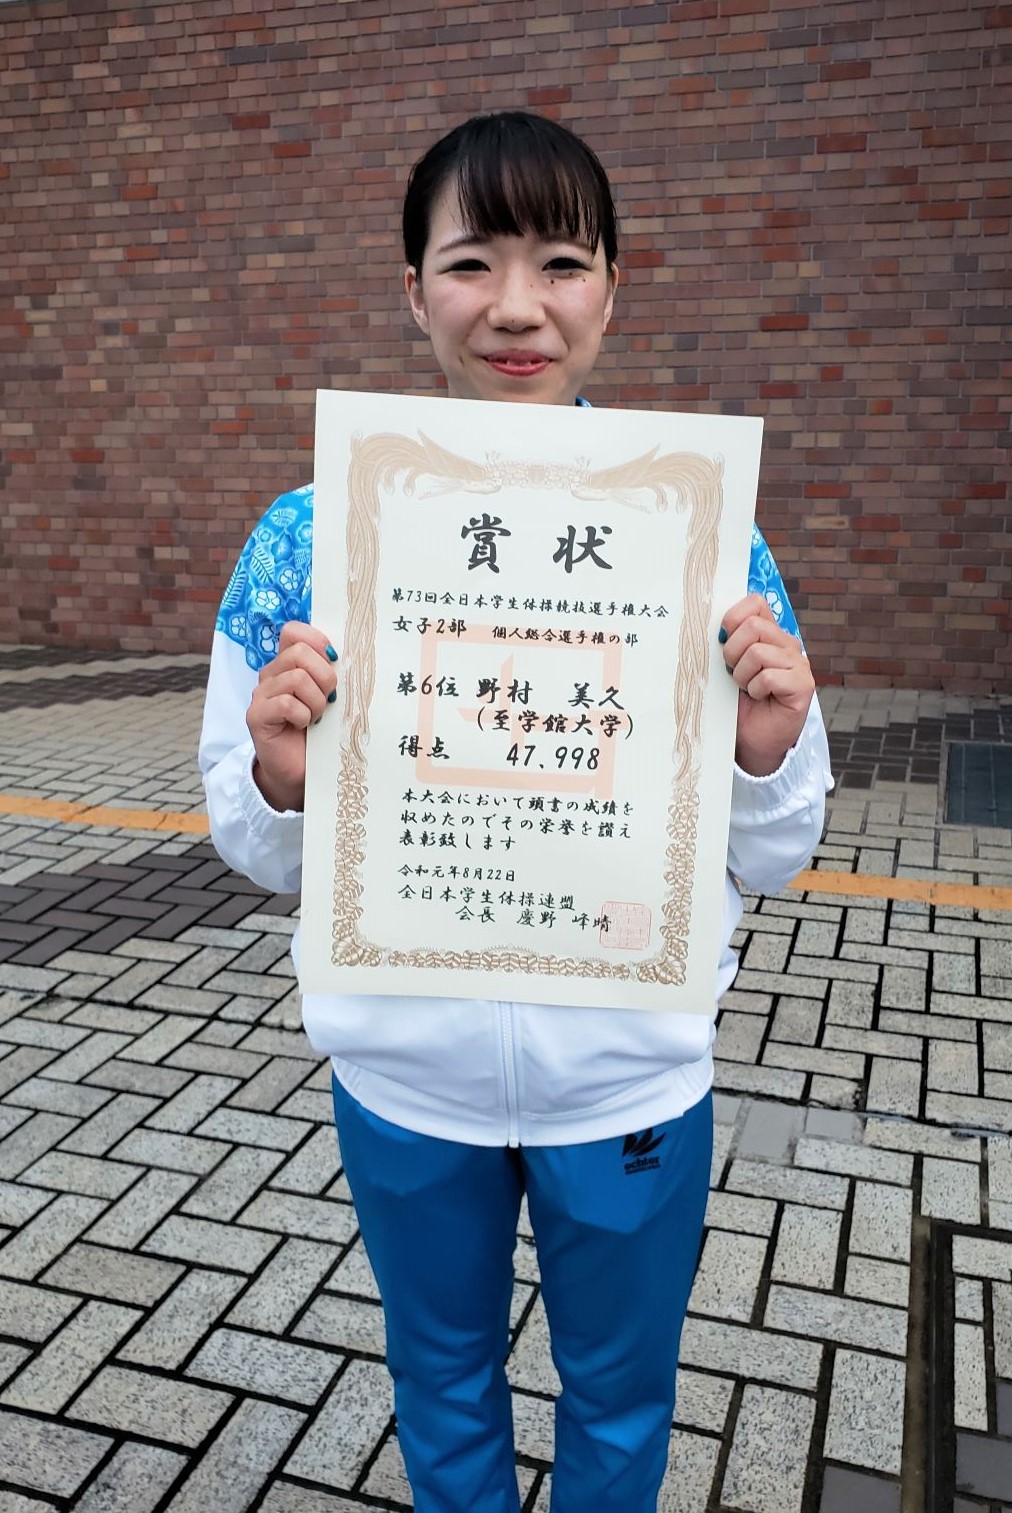 賞状
第73回全日本学生体操競技選手権大会
女子2部 個人総合選手権の部
第6位 野村 美久
(至学館大学)
得点 47.998
本大会において頭書の成績を
収めたのでその栄誉を讃え
表彰致します
令和元年8月22日
全日本学生体操連盟
会長 慶野 峰晴
echter